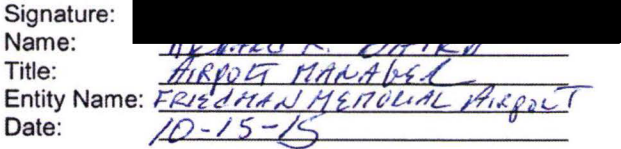 Signature:
Name:
Title: AIRPORT MANAGER
Entity Name: FRIEDMAN MEMORIAL AIRPORT
Date: 10-15-15